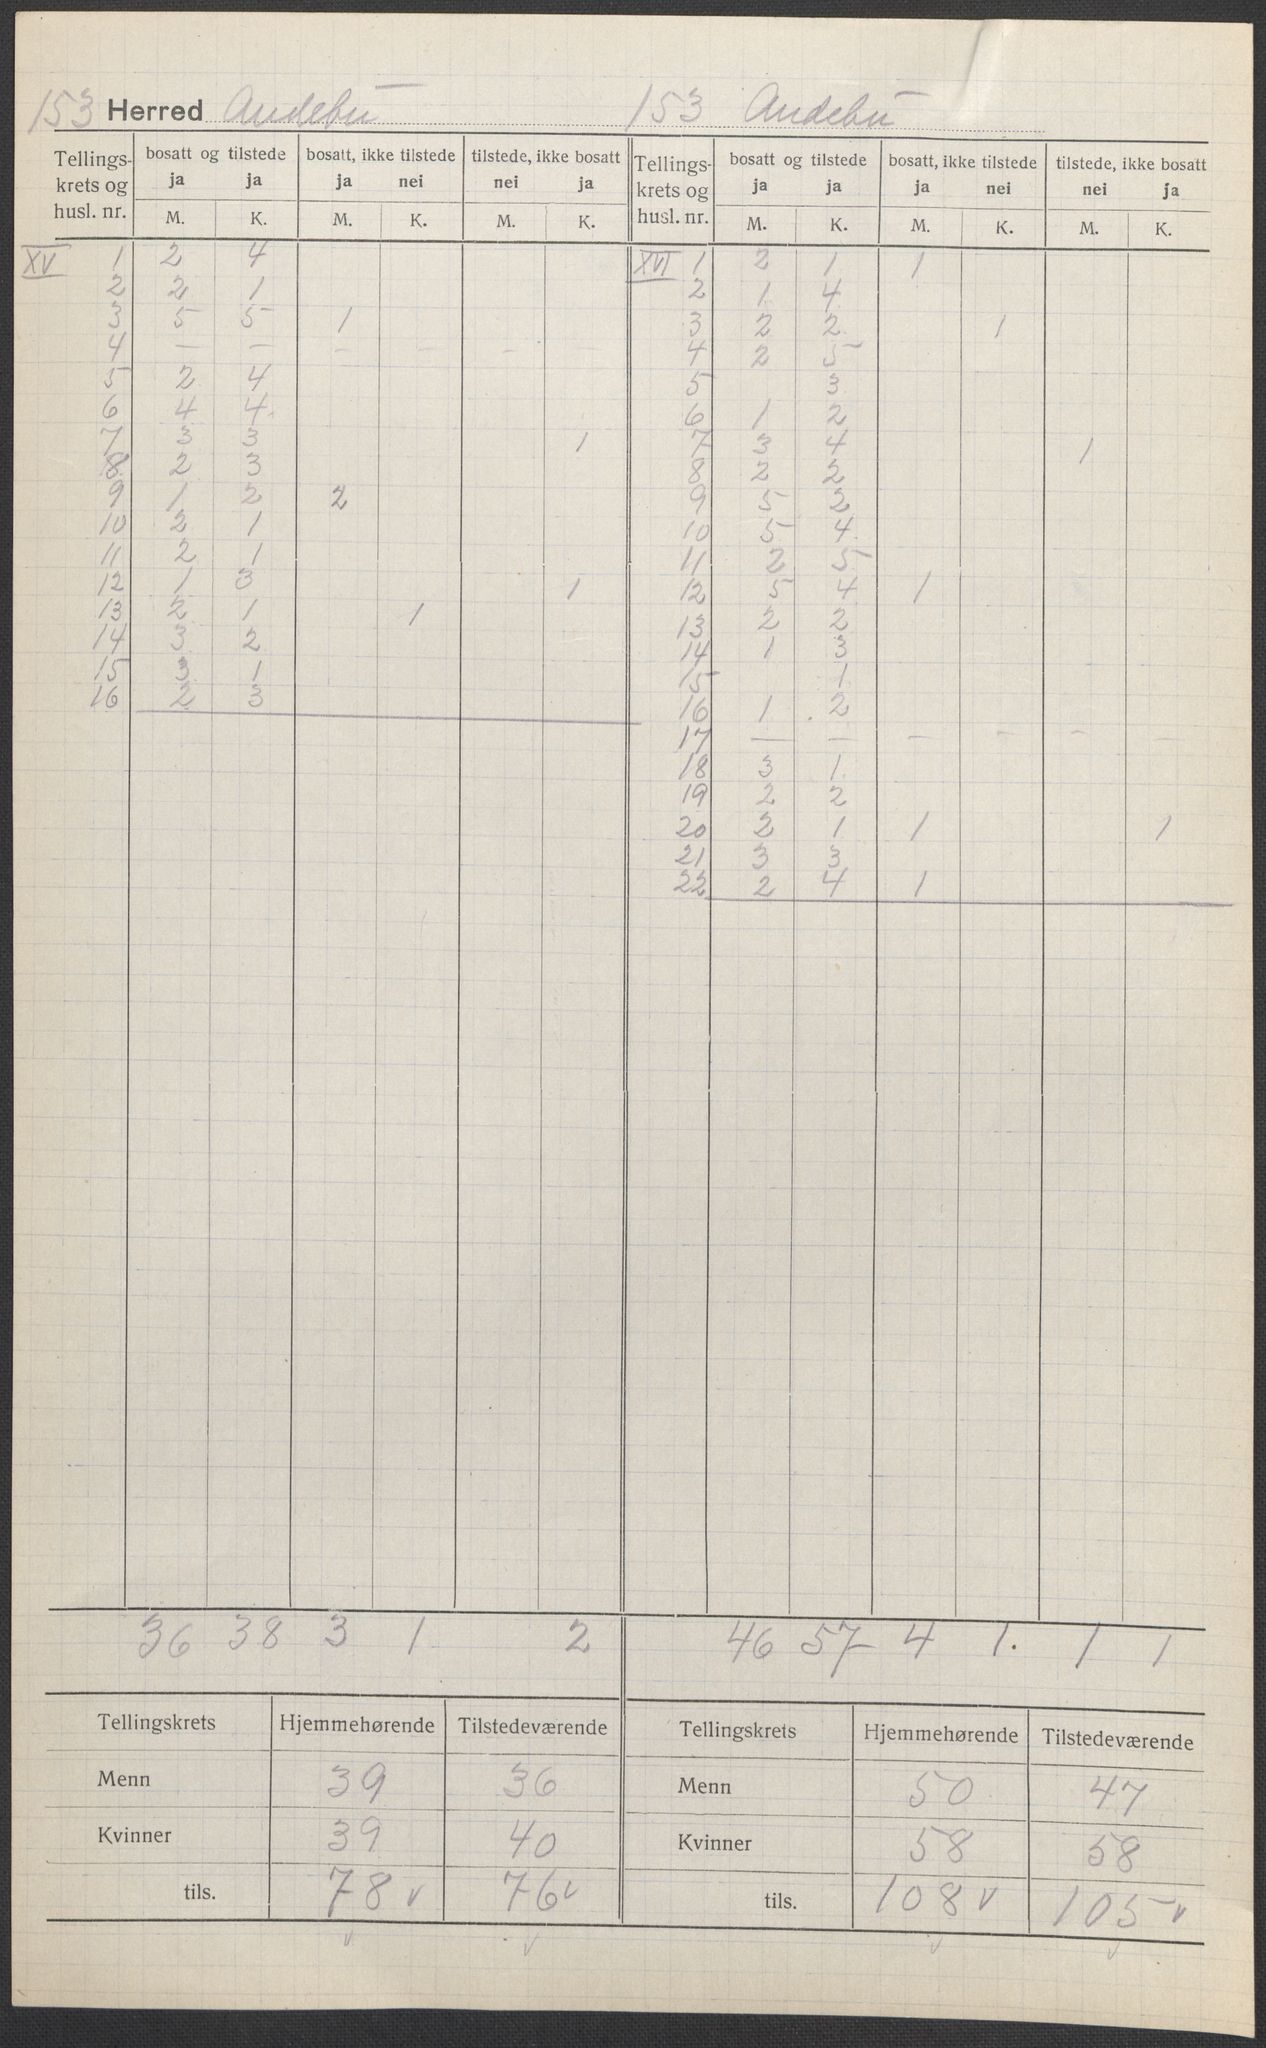 153 Herred Andebu
Tellings-krets og husl. nr. | bosatt og tilstede | bosatt, ikke tilstede | tilstede, ikke bosatt
ja ja | ja nei | nei ja
M. K. | M. K. | M. K.
XV 1 2 4
2 2 1
3 5 5 1
4 — — — — — —
5 2 4
6 4 4
7 3 3 1
8 2 3
9 1 2 2
10 2 1
11 2 1
12 1 3 1
13 2 1 1
14 3 2
15 3 1
16 2 3
36 38 3 1 2
Tellingskrets | Hjemmehørende | Tilstedeværende
Menn 39 36
Kvinner 39 40
tils. 78 v 76 v
v v
153 Andebu
Tellings-krets og husl. nr. | bosatt og tilstede | bosatt, ikke tilstede | tilstede, ikke bosatt
ja ja | ja nei | nei ja
M. K. | M. K. | M. K.
XVI 1 2 1 1
2 1 4
3 2 2 1
4 2 5
5 3
6 1 2
7 3 4 1
8 2 2
9 5 2
10 5 4
11 2 5
12 5 4 1
13 2 2
14 1 3
15 1
16 1 2
17 — — — — — —
18 3 1
19 2 2
20 2 1 1 1
21 3 3
22 2 4 1
46 57 4 1. 1 1
Tellingskrets | Hjemmehørende | Tilstedeværende
Menn 50 47
Kvinner 58 58
tils. 108 v 105 v
v v